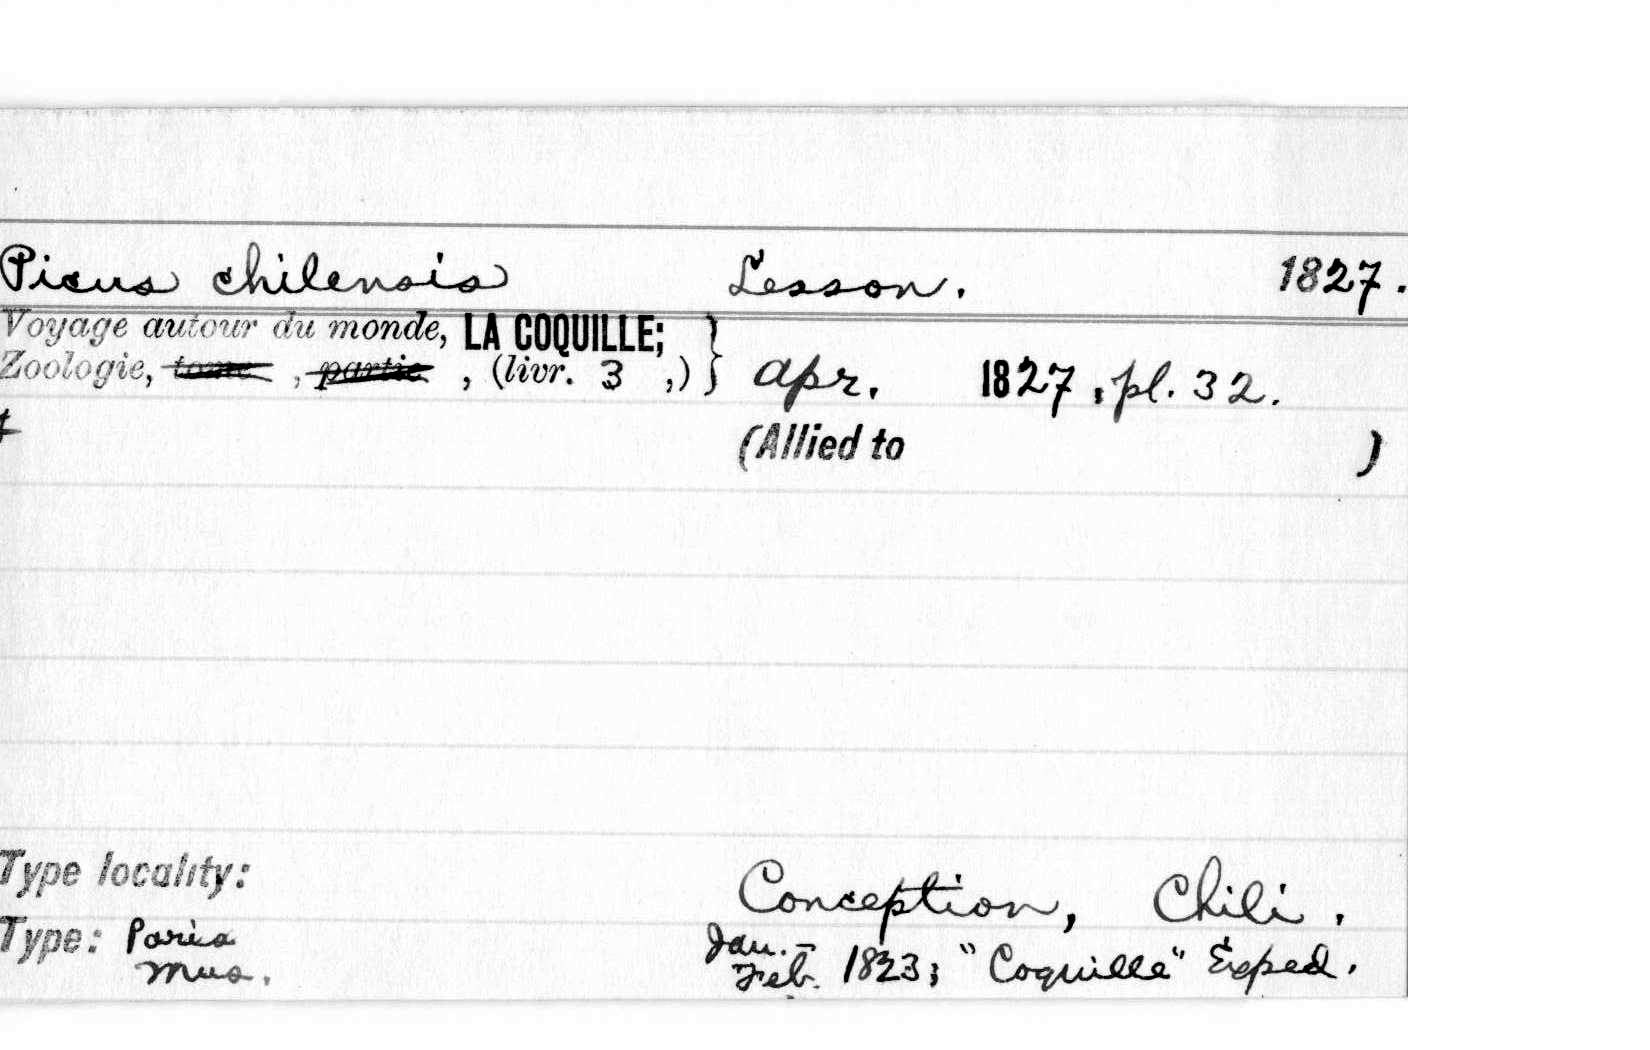 Picus chilensis Lesson. 1827.
Voyage autour du monde, LA COQUILLE;
Zoologie, tome , partie , (livr. 3 ,) } apr. 1827, pl. 32.
(Allied to )
Type locality: Conception, Chili.
Type: Paris Mus. Jan.-Feb. 1823; "Coquille" Exped.